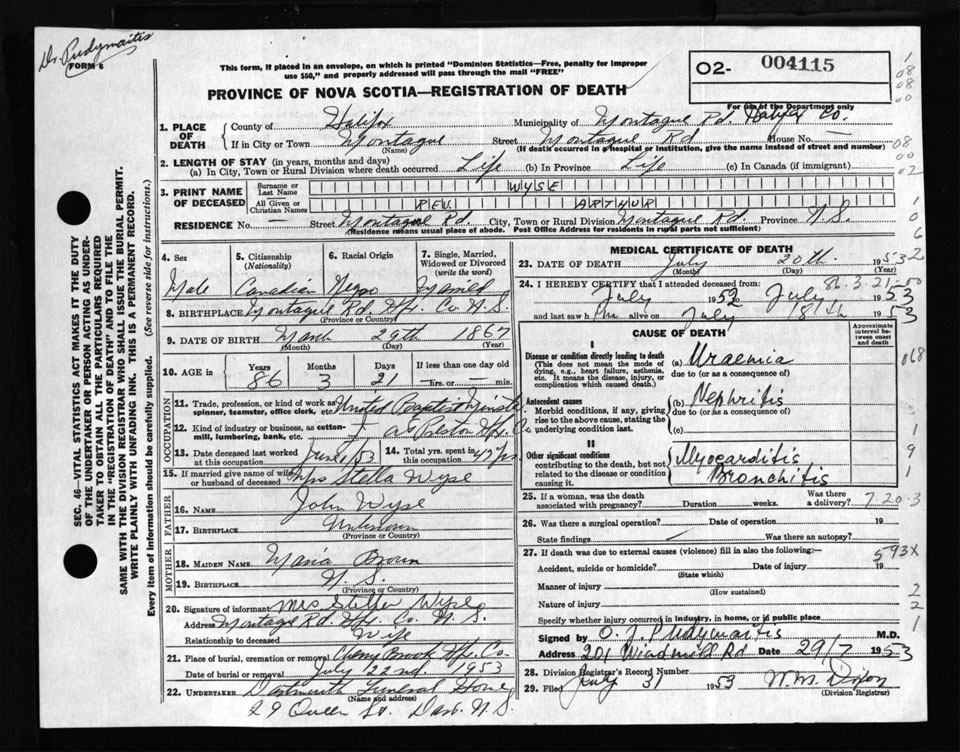 Dr. Pudymaitis
FORM 6
This form, if placed in an envelope, on which is printed "Dominion Statistics—Free, penalty for improper
use $50," and properly addressed will pass through the mail "FREE"
PROVINCE OF NOVA SCOTIA—REGISTRATION OF DEATH
02- 004115
For use of the Department only
1. PLACE OF DEATH
County of Halifax Municipality of Montague Rd. Halifax Co.
If in City or Town Montague Street Montague Rd House No. —
(Name) (If death occurred in a hospital or institution, give the name instead of street and number)
2. LENGTH OF STAY (in years, months and days)
(a) In City, Town or Rural Division where death occurred Life (b) In Province Life (c) In Canada (if immigrant)
3. PRINT NAME OF DECEASED
Surname or Last Name WYSE
All Given or Christian Names REV. ARTHUR
RESIDENCE No. — Street Montague Rd. City, Town or Rural Division Montague Rd. Province N.S.
(Residence means usual place of abode. Post Office Address for residents in rural parts not sufficient)
4. Sex 5. Citizenship (Nationality) 6. Racial Origin 7. Single, Married, Widowed or Divorced (write the word)
Male Canadian Negro Married
8. BIRTHPLACE Montague Rd. Hfx. Co. N.S.
(Province or Country)
9. DATE OF BIRTH March 29th 1867
(Month) (Day) (Year)
10. AGE in Years Months Days If less than one day old
86 3 21 hrs. or min.
OCCUPATION
11. Trade, profession, or kind of work as spinner, teamster, office clerk, etc. United Baptist Minister
12. Kind of industry or business, as cotton-mill, lumbering, bank, etc. at Preston Hfx. Co
13. Date deceased last worked at this occupation June 1/53 14. Total yrs. spent in this occupation 47 yrs.
15. If married give name of wife or husband of deceased Mrs Stella Wyse
FATHER
16. Name John Wyse
17. Birthplace Unknown
(Province or Country)
MOTHER
18. Maiden Name Maria Brown
19. Birthplace N.S.
(Province or Country)
20. Signature of informant Mrs Stella Wyse
Address Montague Rd. Hfx. Co. N.S.
Relationship to deceased Wife
21. Place of burial, cremation or removal Cherry Brook Hfx. Co.
Date of burial or removal July 22nd. 1953
22. Undertaker Dartmouth Funeral Home
(Name and address)
29 Queen St. Dart. N.S.
MEDICAL CERTIFICATE OF DEATH
23. DATE OF DEATH July 20th 1953
(Month) (Day) (Year)
24. I HEREBY CERTIFY that I attended deceased from: 86.3.21
July 1952 to July 1953
and last saw him alive on July 18th 1953
CAUSE OF DEATH
Approximate interval between onset and death
I
Disease or condition directly leading to death (a) Uraemia
(This does not mean the mode of dying, e.g., heart failure, asthenia, etc. It means the disease, injury, or complication which caused death.)
due to (or as a consequence of)
Antecedent causes (b) Nephritis
Morbid conditions, if any, giving rise to the above cause, stating the underlying condition last.
due to (or as a consequence of)
(c)
II
Other significant conditions contributing to the death, but not related to the disease or condition causing it.
Myocarditis
Bronchitis
25. If a woman, was the death associated with pregnancy? Duration weeks. Was there a delivery? 7.20.3
26. Was there a surgical operation? Date of operation 19
State findings Was there an autopsy?
27. If death was due to external causes (violence) fill in also the following:— 593X
Accident, suicide or homicide? Date of injury 19
(State which)
Manner of injury
(How sustained)
Nature of injury
Specify whether injury occurred in industry, in home, or in public place
Signed by O. J. Pudymaitis M.D.
Address 201 Windmill Rd Date 29/7 1953
28. Division Registrar's Record Number
29. Filed July 31 1953 W.M. Dixon
(Division Registrar)
SEC. 46—VITAL STATISTICS ACT MAKES IT THE DUTY
OF THE UNDERTAKER OR PERSON ACTING AS UNDER-
TAKER TO OBTAIN ALL THE PARTICULARS REQUIRED
IN THE "REGISTRATION OF DEATH" AND TO FILE THE
SAME WITH THE DIVISION REGISTRAR WHO SHALL ISSUE THE BURIAL PERMIT.
WRITE PLAINLY WITH UNFADING INK. THIS IS A PERMANENT RECORD.
Every item of information should be carefully supplied. (See reverse side for instructions.)